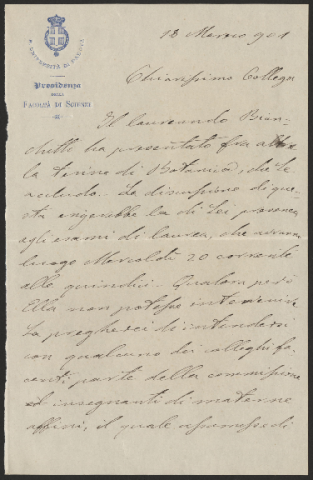 18 Marzo 901
R. UNIVERSITÀ DI PADOVA
Presidenza
DELLA
FACOLTÀ DI SCIENZE
Chiarissimo Collega
Il laureando Bian-
chetti ha presentato fra altro
la tesina di Botanica, che Le
accludo. La discussione di que-
sta esigerebbe la di Lei presenza
agli esami di laurea, che avranno
luogo Mercoledì 20 corrente
alle quindici. Qualora però
Ella non potesse intervenire
La pregherei di intendersi
con qualcuno dei colleghi fa-
centi parte della commissione
ed insegnanti di materie
affini, il quale assumesse di